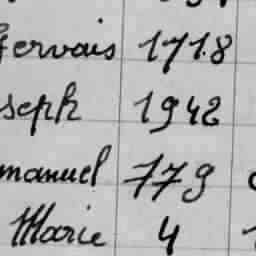 Gervais 1718
seph 1942
manuel 779
Marie 4